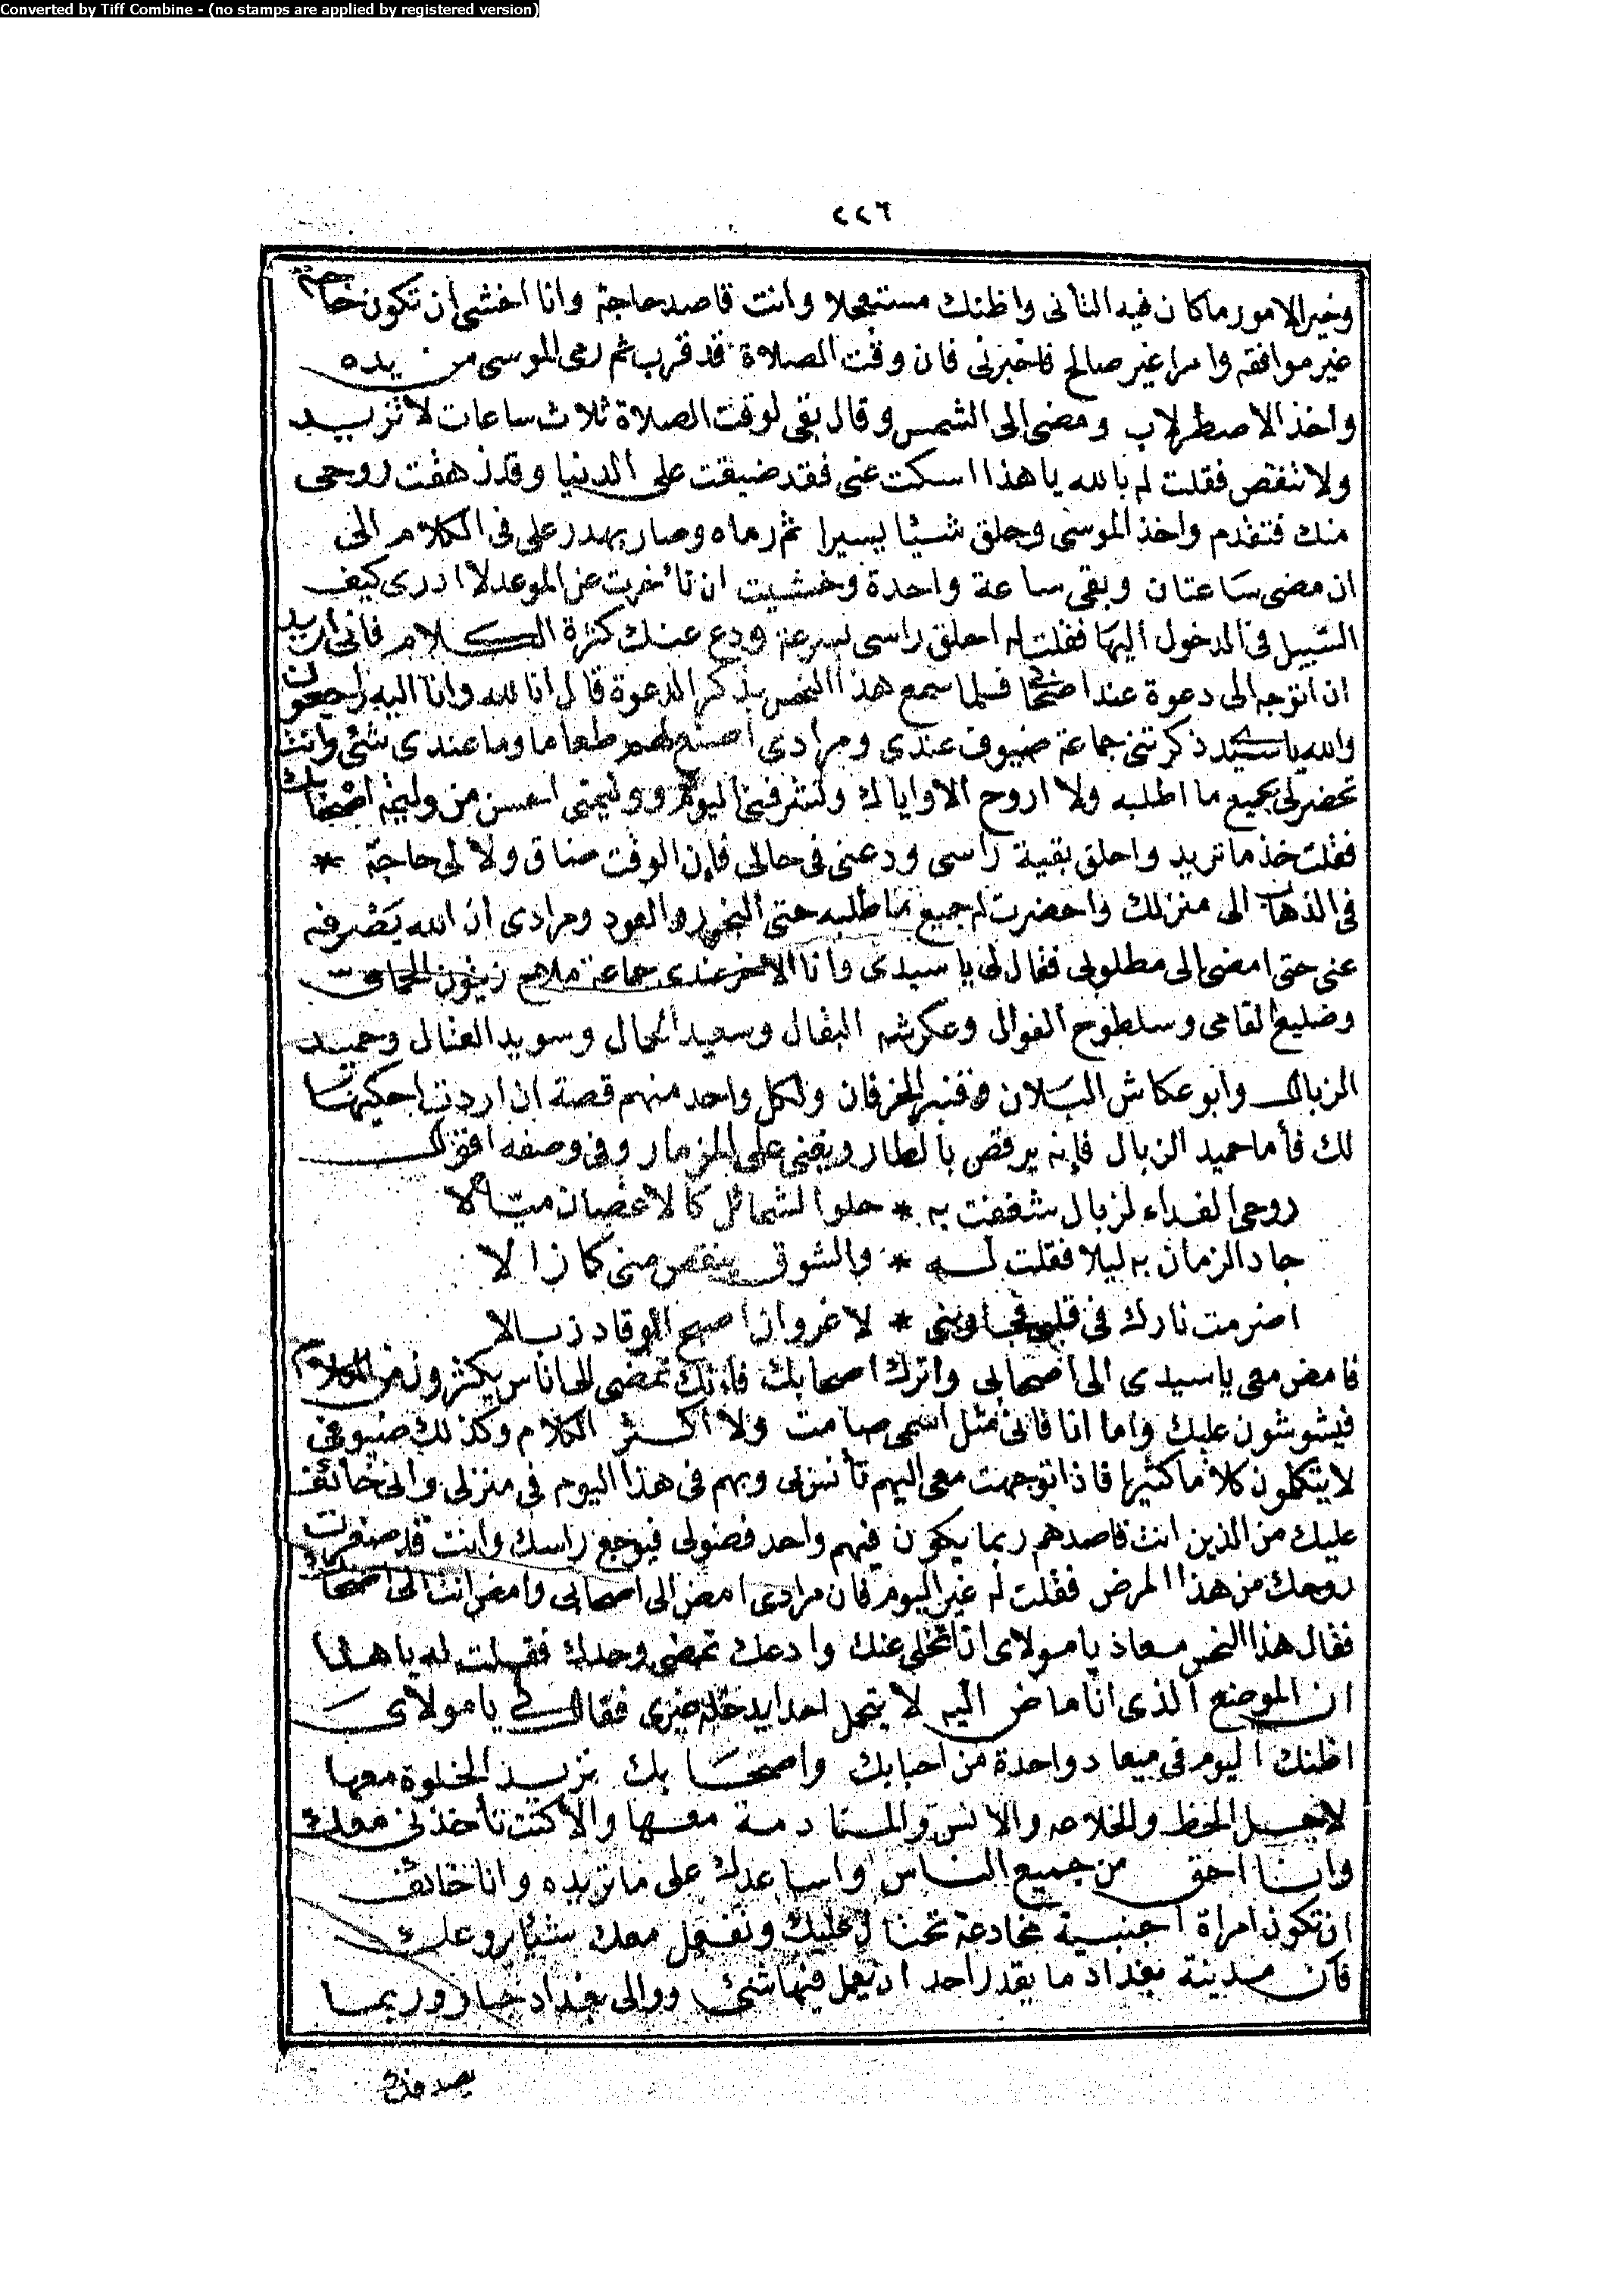 Converted by Tiff Combine - (no stamps are applied by registered version)
٢٢٦
وخير الامور ما كان فيه التأنى واظنك مستعجلا وانت قاصد حاجة وانا اخشى ان تكون حاجة
غير موافقه وامرا غير صالح فاخبرنى فان وقت الصلاة قد قرب ثم رمى الموسى من يده
واخذ الاصطرلاب ومضى الى الشمس وقال بقى لوقت الصلاة ثلاث ساعات لا تزيد
ولا تنقص فقلت له بالله يا هذا اسكت عنى فقد ضيقت على الدنيا وقد زهقت روحى
منك فتقدم واخذ الموسى وحلق شيئا يسيرا ثم رماه وصار يهدر على فى الكلام الى
ان مضى ساعتان وبقى ساعة واحدة وخشيت ان تأخرت عن الموعد لا ادرى كيف
السبيل فى الدخول اليها فقلت له احلق راسى بسرعة ودع عنك كثرة الكلام فانى اريد
ان اتوجه الى دعوة عند اصحابى فلما سمع هذا النحس بذكر الدعوة قال انا لله وانا اليه راجعون
والله يا سيد ذكرتنى جماعة ضيوف عندى ومرادى اصنع لهم طعاما وما عندى شئ وانت
تحضر لى بجميع ما اطلبه ولا اروح الا واياك ولتشرفنى اليوم ووليمتى احسن من وليمة اصحابك
فقلت خذ ما تريد واحلق بقية راسى ودعنى فى حالى فإن الوقت ضاق ولا لى حاجة *
فى الذهاب الى منزلك واحضرت له جميع ما طلبه حتى البخور والعود ومرادى ان الله يصرفه
عنى حتى امضى الى مطلوبى فقال لى يا سيدى وانا الاخر عندى جماعة ملاهم زيتون الحمامى
وضليع القامى وسلطوح الفوال وعكرشه البقال وسعيد الجمال وسويد العتال وحميد
الزبال وابو عكاش البلان وقنبر الخرقان ولكل واحد منهم قصة ان اردت احكيها
لك فأما حميد الزبال فإنه يرقص بالطار ويغنى على المزمار وفى وصفه اقول
روحى الفداء لزبال شغفت به * حلو الشمائل كالاغصان ميالا
جاد الزمان به ليلا فقلت له * والشوق ينقص منى كما زالا
اضرمت نارك فى قلبى فجاوبنى * لا غرو ان اصبح الوقاد زبالا
فامض معى يا سيدى الى اصحابى واترك اصحابك فإنك تمضى الى اناس يكثرون من الكلام
فيشوشون عليك واما انا فانى مثل اسمى صامت ولا اكثر الكلام وكذلك ضيوفى
لا يتكلمون كلاما كثيرا فاذا توجهت معى اليهم تأنس بى وبهم فى هذا اليوم فى منزلى وانى خائف
عليك من الذين انت قاصدهم ربما يكون فيهم واحد فضولى فيوجع راسك وانت قد صغرت
روحك من هذا المرض فقلت له غير اليوم فان مرادى امض الى اصحابى وامض انت الى اصحابك
فقال هذا النحس معاذ يا مولاى ان اتخلى عنك وادعك تمضى وحدك فقلت له يا هذا
ان الموضع الذى انا ماض اليه لا يتحمل احدا يدخله غيرى فقال لى يا مولاى
اظنك اليوم فى ميعاد واحدة من احبابك واصحابك تريد الخلوة معها
لاجل الحظ والخلاعه والانس والمنادمة معها والا كنت تأخذنى معك
وانا احق من جميع الناس واساعدك على ما تريده وانا خائف
ان تكون امراة اجنبية مخادعة تحتال عليك وتفعل معك شيئا يروعك
فان مدينة بغداد ما يقدر احد ان يعمل فيها شئ ووالى بغداد جبار وربما